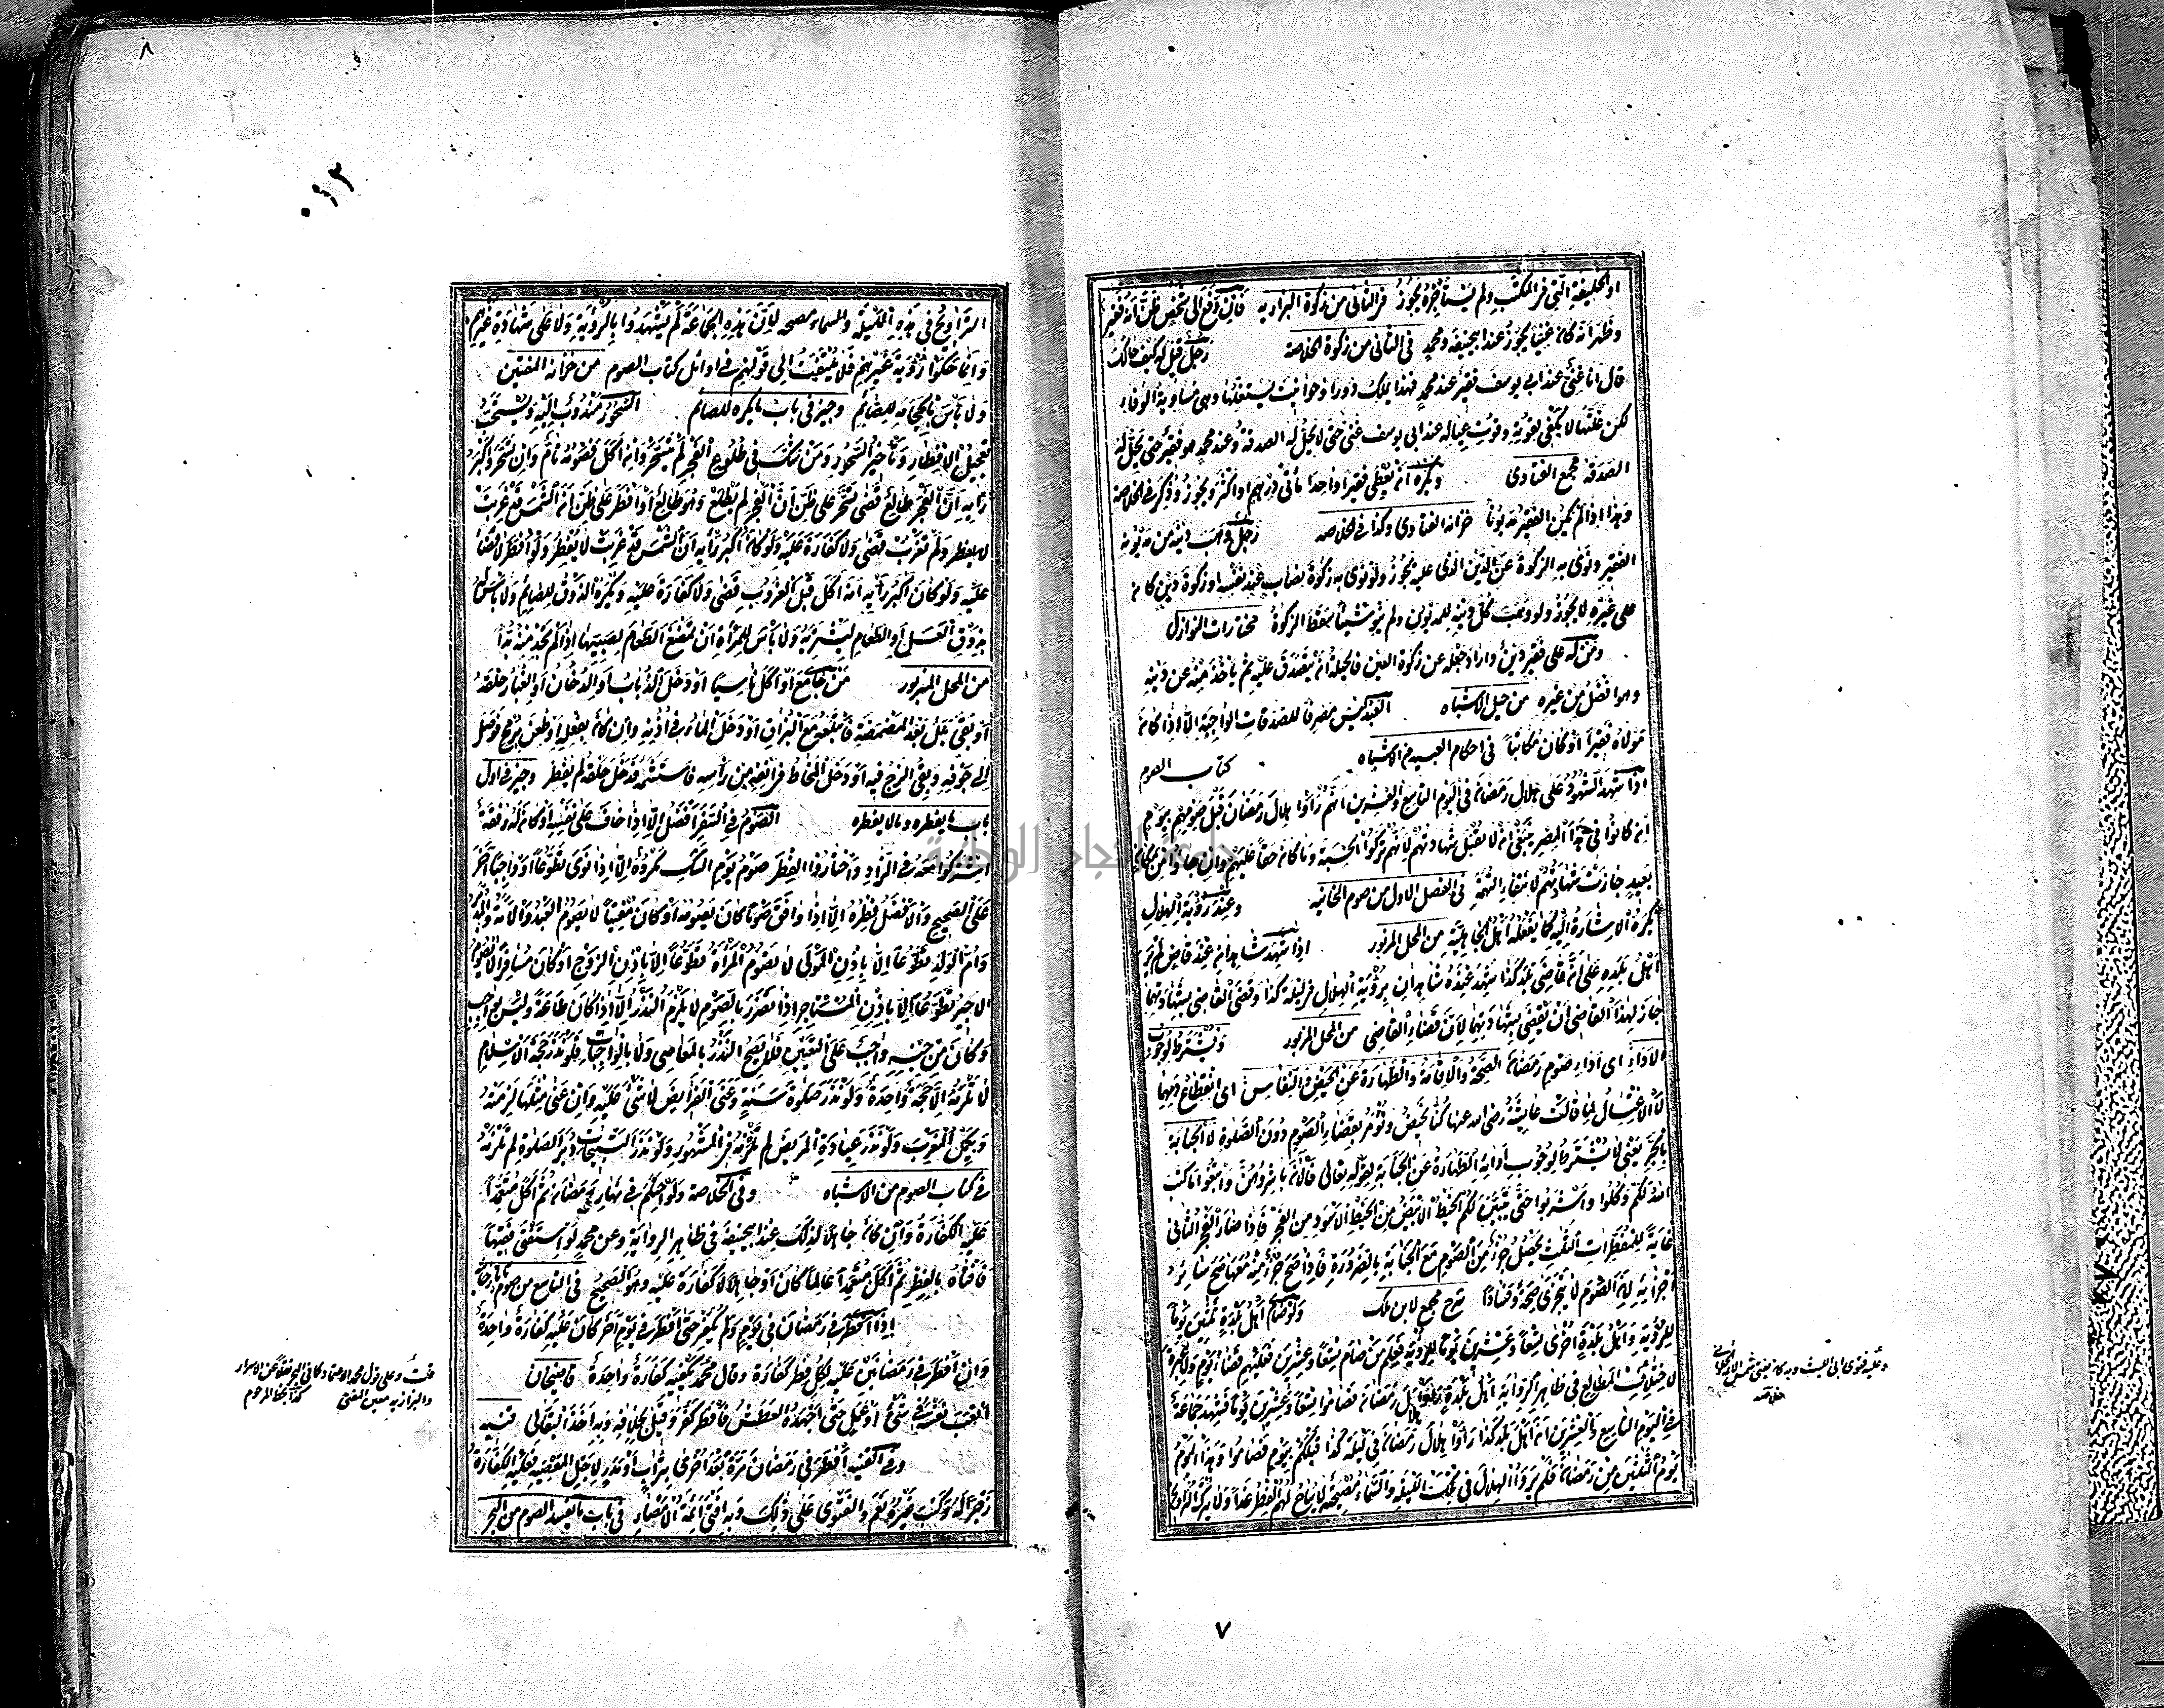 او الخليفة التى فى المكتب ولم يستأجره يجوز فى الثانى من زكوة البزازيه فان دفع الى شخص ظن انه فقير
وظهر انه كان غنيا يجوز عند ابيحنيفة ومحمد فى الثانى من زكوة الخلاصة رجل قيل له كيف حالك
قال انا غنى عند ابى يوسف فقير عند محمد فهذا يملك دورا وحوانيت يستغلها وهى تساوى الوفا
لكن غلتها لا تكفى لقوته وقوت عياله عند ابى يوسف غنى حتى لا يحل له الصدقة وعند محمد هو فقير حتى يحل له
الصدقة مجمع الفتاوى ويكره ان يعطى فقيرا واحدا مأتى درهم او اكثر ويجوز وذكر فى الخلاصة
وهذا اذا لم يكن الفقير مديونا خزانة الفتاوى وكذا فى الخلاصه رجل وهب دينه من مديونه
الفقير ونوى به الزكوة عن الدين الذى عليه يجوز ولو نوى به زكوة نصاب عند نفسه او زكوة دين كان
على غيره لا يجوز ولو وهبت كل دينه للمديون ولم ينو شيئا سقط الزكوة مختارات النوازل
ومن له على فقير دين واراد جعله عن زكوة العين فالحيلة ان يتصدق عليه ثم يأخذ منه عن دينه
وهو افضل من غيره من حيل الاشباه العبد ليس مصرفا للصدقات الواجبة الا اذا كان
مولاه فقيرا او كان مكاتبا فى احكام العبيد من الاشباه كتاب الصوم
اذا شهد الشهود على هلال رمضان فى اليوم التاسع والعشرين انهم رأوا هلال رمضان قبل صومهم بيوم
ان كانوا فى هذا المصر ينبغى ان لا تقبل شهادتهم لانهم تركوا الحسبة وما كان حقا عليهم وان جاؤا من مكان
بعيد جازت شهادتهم لانتفاء التهمة فى الفصل الاول من صوم الخانيه وعند رؤية الهلال
يكره الاشارة اليه كما يفعله اهل الجاهلية من المحل المزبور اذا شهد شاهدان عند قاض لم ير
اهل بلده على ان قاضى بلد كذا شهد عنده شاهدان برؤية الهلال فى ليلة كذا وقضى القاضى بشهادتهما
جاز لهذا القاضى ان يقضى بشهادتهما لان قضاء القاضى من المحل المزبور ويشترط لوجوب
الاداء اى اداء صوم رمضان الصحة والاقامة والطهارة عن الحيض والنفاس اى انقطاع دمهما
لا الاغتسال لما قالت عايشة رضى الله عنها كنا نحيض ونؤمر بقضاء الصوم دون الصلوة لا الجنابة
بالجر يعنى لا يشترط لوجوب ادائه الطهارة عن الجنابة لقوله تعالى فالآن باشروهن وابتغوا ما كتب
الله لكم وكلوا واشربوا حتى يتبين لكم الخيط الابيض من الخيط الاسود من الفجر فاذا صار الفجر الثانى
غاية للمفطرات الثلث يحصل جزء من الصوم مع الجنابة بالضرورة فاذا صح جزء منه معها صح سائر
اجزائه لان الصوم لا يتجزى صحة وفسادا شرح مجمع لابن ملك ولو صام اهل بلدة ثلثين يوما
للرؤية واهل بلدة اخرى تسعا وعشرين يوما للرؤية فعلم من صام تسعا وعشرين فعليهم قضاء يوم ولا عبرة
لاختلاف المطالع فى ظاهر الرواية اهل بلدة رأوا هلال رمضان فصاموا تسعا وعشرين يوما فشهد جماعة
فى اليوم التاسع والعشرين ان اهل بلد كذا رأوا هلال رمضان فى ليلة كذا قبلكم بيوم فصاموا وهذا اليوم
يوم الثلثين من رمضان فلم يروا الهلال فى تلك الليلة والسماء مصحية لا يباح لهم الفطر غدا ولا يترك التراويح
وعليه فتوى ابى الليث وبه كان يفتى شمس الائمة الحلوانى
خلاصه
٧
٨
التراويح فى هذه الليلة والسماء مصحيه لان هذه الجماعة لم يشهدوا بالرؤية ولا على شهادة غيرهم
وانما حكوا رؤية غيرهم فلا يلتفت الى قولهم فى اوائل كتاب الصوم من خزانة المفتين
ولا بأس بالحجامة للصائم وجيز فى باب ما يكره للصائم التسحر مندوب اليه ويستحب
تعجيل الافطار وتأخير السحور ومن شك فى طلوع الفجر لم يتسحر وان اكل فصومه تام وان تسحر واكبر
رأيه ان الفجر طالع قضى تسحر على ظن ان الفجر لم يطلع وهو طالع او افطر على ظن ان الشمس قد غربت
لا يفطر ولم تغرب قضى ولا كفارة عليه ولو كان اكبر رأيه ان الشمس قد غربت لا يفطر ولو افطر لا قضاء
عليه ولو كان اكبر رأيه انه اكل قبل الغروب قضى ولا كفارة عليه ويكره الذوق للصائم ولا بأس
بذوق العسل او الطعام ليشتريه ولا بأس للمرأة ان تمضغ الطعام لصبيها اذا لم تجد منه بدا
من المحل المزبور من جامع او اكل ناسيا او دخل الذباب او الدخان او الغبار حلقه
او بقى بلل بعد المضمضة فابتلعه مع البزاق او دخل الماء فى اذنه وان كان بفعله او طعن برمح فوصل
الى جوفه وبقى الزج فيه او دخل المخاط فى انفه من رأسه فاستشمه فدخل حلقه لم يفطر وجيز فى اول
باب ما يفطره وما لا يفطره الصوم فى السفر افضل الا اذا خاف على نفسه او كان له رفقة
اشتركوا معه فى الزاد واختاروا الفطر صوم يوم الشك مكروه الا اذا نوى تطوعا او واجبا آخر
على الصحيح والافضل فطره الا اذا وافق صوما كان يصومه او كان مفتيا لا يصوم العبد والامة والمدبر
وام الولد تطوعا الا باذن المولى لا تصوم المرأة تطوعا الا باذن الزوج او كان مسافرا لا يصوم
الاجير تطوعا الا باذن المستأجر اذا تضرر بالصوم لا يلزم النذر الا اذا كان طاعة وليس بواجب
وكان من جنسه واجب على التعيين فلا يصح النذر بالمعاصى ولا بالواجبات فلو نذر حجة الاسلام
لا تلزمه الا حجة واحدة ولو نذر صلوة سنة وعنى الفرايض لا شئ عليه وان عنى مثلها لزمته
ويكمل المغرب ولو نذر عيادة المريض لم تلزمه فى المشهور ولو نذر التسبيحات دبر الصلوة لم تلزمه
فى كتاب الصوم من الاشباه وفى الخلاصة ولو احتلم فى نهار رمضان ثم اكل متعمدا
عليه الكفارة وان كان جاهلا لذلك عند ابيحنيفة فى ظاهر الرواية وعن محمد لو استفتى فقيها
فافتاه بالفطر ثم اكل متعمدا عالما كان او جاهلا لا كفارة عليه وهو الصحيح فى التاسع من صوم
اذا افطر فى رمضان فى يوم ولم يكفر حتى افطر فى يوم آخر كان عليه كفارة واحدة
وان افطر فى رمضانين عليه لكل فطر كفارة وقال محمد يكفيه كفارة واحدة قاضيخان
اتعب نفسه فى شئ او عمل حتى اجهده العطش فافطر كفر وقيل بخلافه وبه اخذ البقالى قنيه
وفى القنيه افطر فى رمضان مرة بعد اخرى بتراب او مدر لاجل المعصية فعليه الكفارة
زجرا له وكتب غيره نعم والفتوى على ذلك وبه افتى ائمة الامصار فى باب ما يفسد الصوم من البحر
قلت وعلى قول محمد الاعتماد كما فى البحر نقلا عن الاسرار
والبزازيه معين المفتى كذا بخط المرحوم